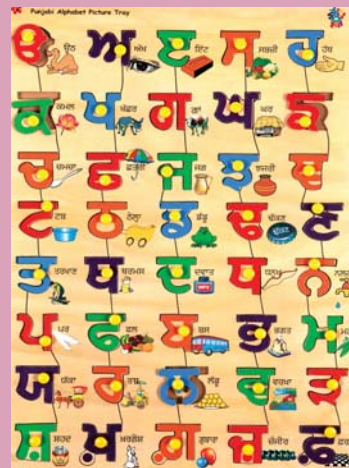 Punjabi Alphabet Picture Tray
ੳ ਊਠ ਅ ਅੱਖ ੲ ਇੱਟ ਸ ਸਬਜ਼ੀ ਹ ਹੱਥ
ਕ ਕਮਲ ਖ ਖੱਚਰ ਗ ਗਾਂ ਘ ਘਰ ਙ
ਚ ਚਮਚਾ ਛ ਛਤਰੀ ਜ ਜਗ ਝ ਝਜਰੀ ਞ
ਟ ਟਬ ਠ ਠੇਲਾ ਡ ਡੱਡੂ ਢ ਢੱਕਣ ਢੱਕਣ ਣ
ਤ ਤਰਖਾਣ ਥ ਥਰਮਸ ਦ ਦਵਾਤ ਧ ਨ
ਪ ਪਰ ਫ ਫਲ ਬ ਬਸ ਭ ਭਗਤ ਮ
ਯ ਯੱਕਾ ਰ ਰਥ ਲ ਲੱਡੂ ਵ ਵਰਖਾ ੜ
ਸ਼ ਸ਼ਹਦ ਖ਼ ਖ਼ਰਗੋਸ਼ ਗ਼ ਗੁਬਾਰਾ ਜ਼ ਜ਼ੰਜੀਰ ਫ਼